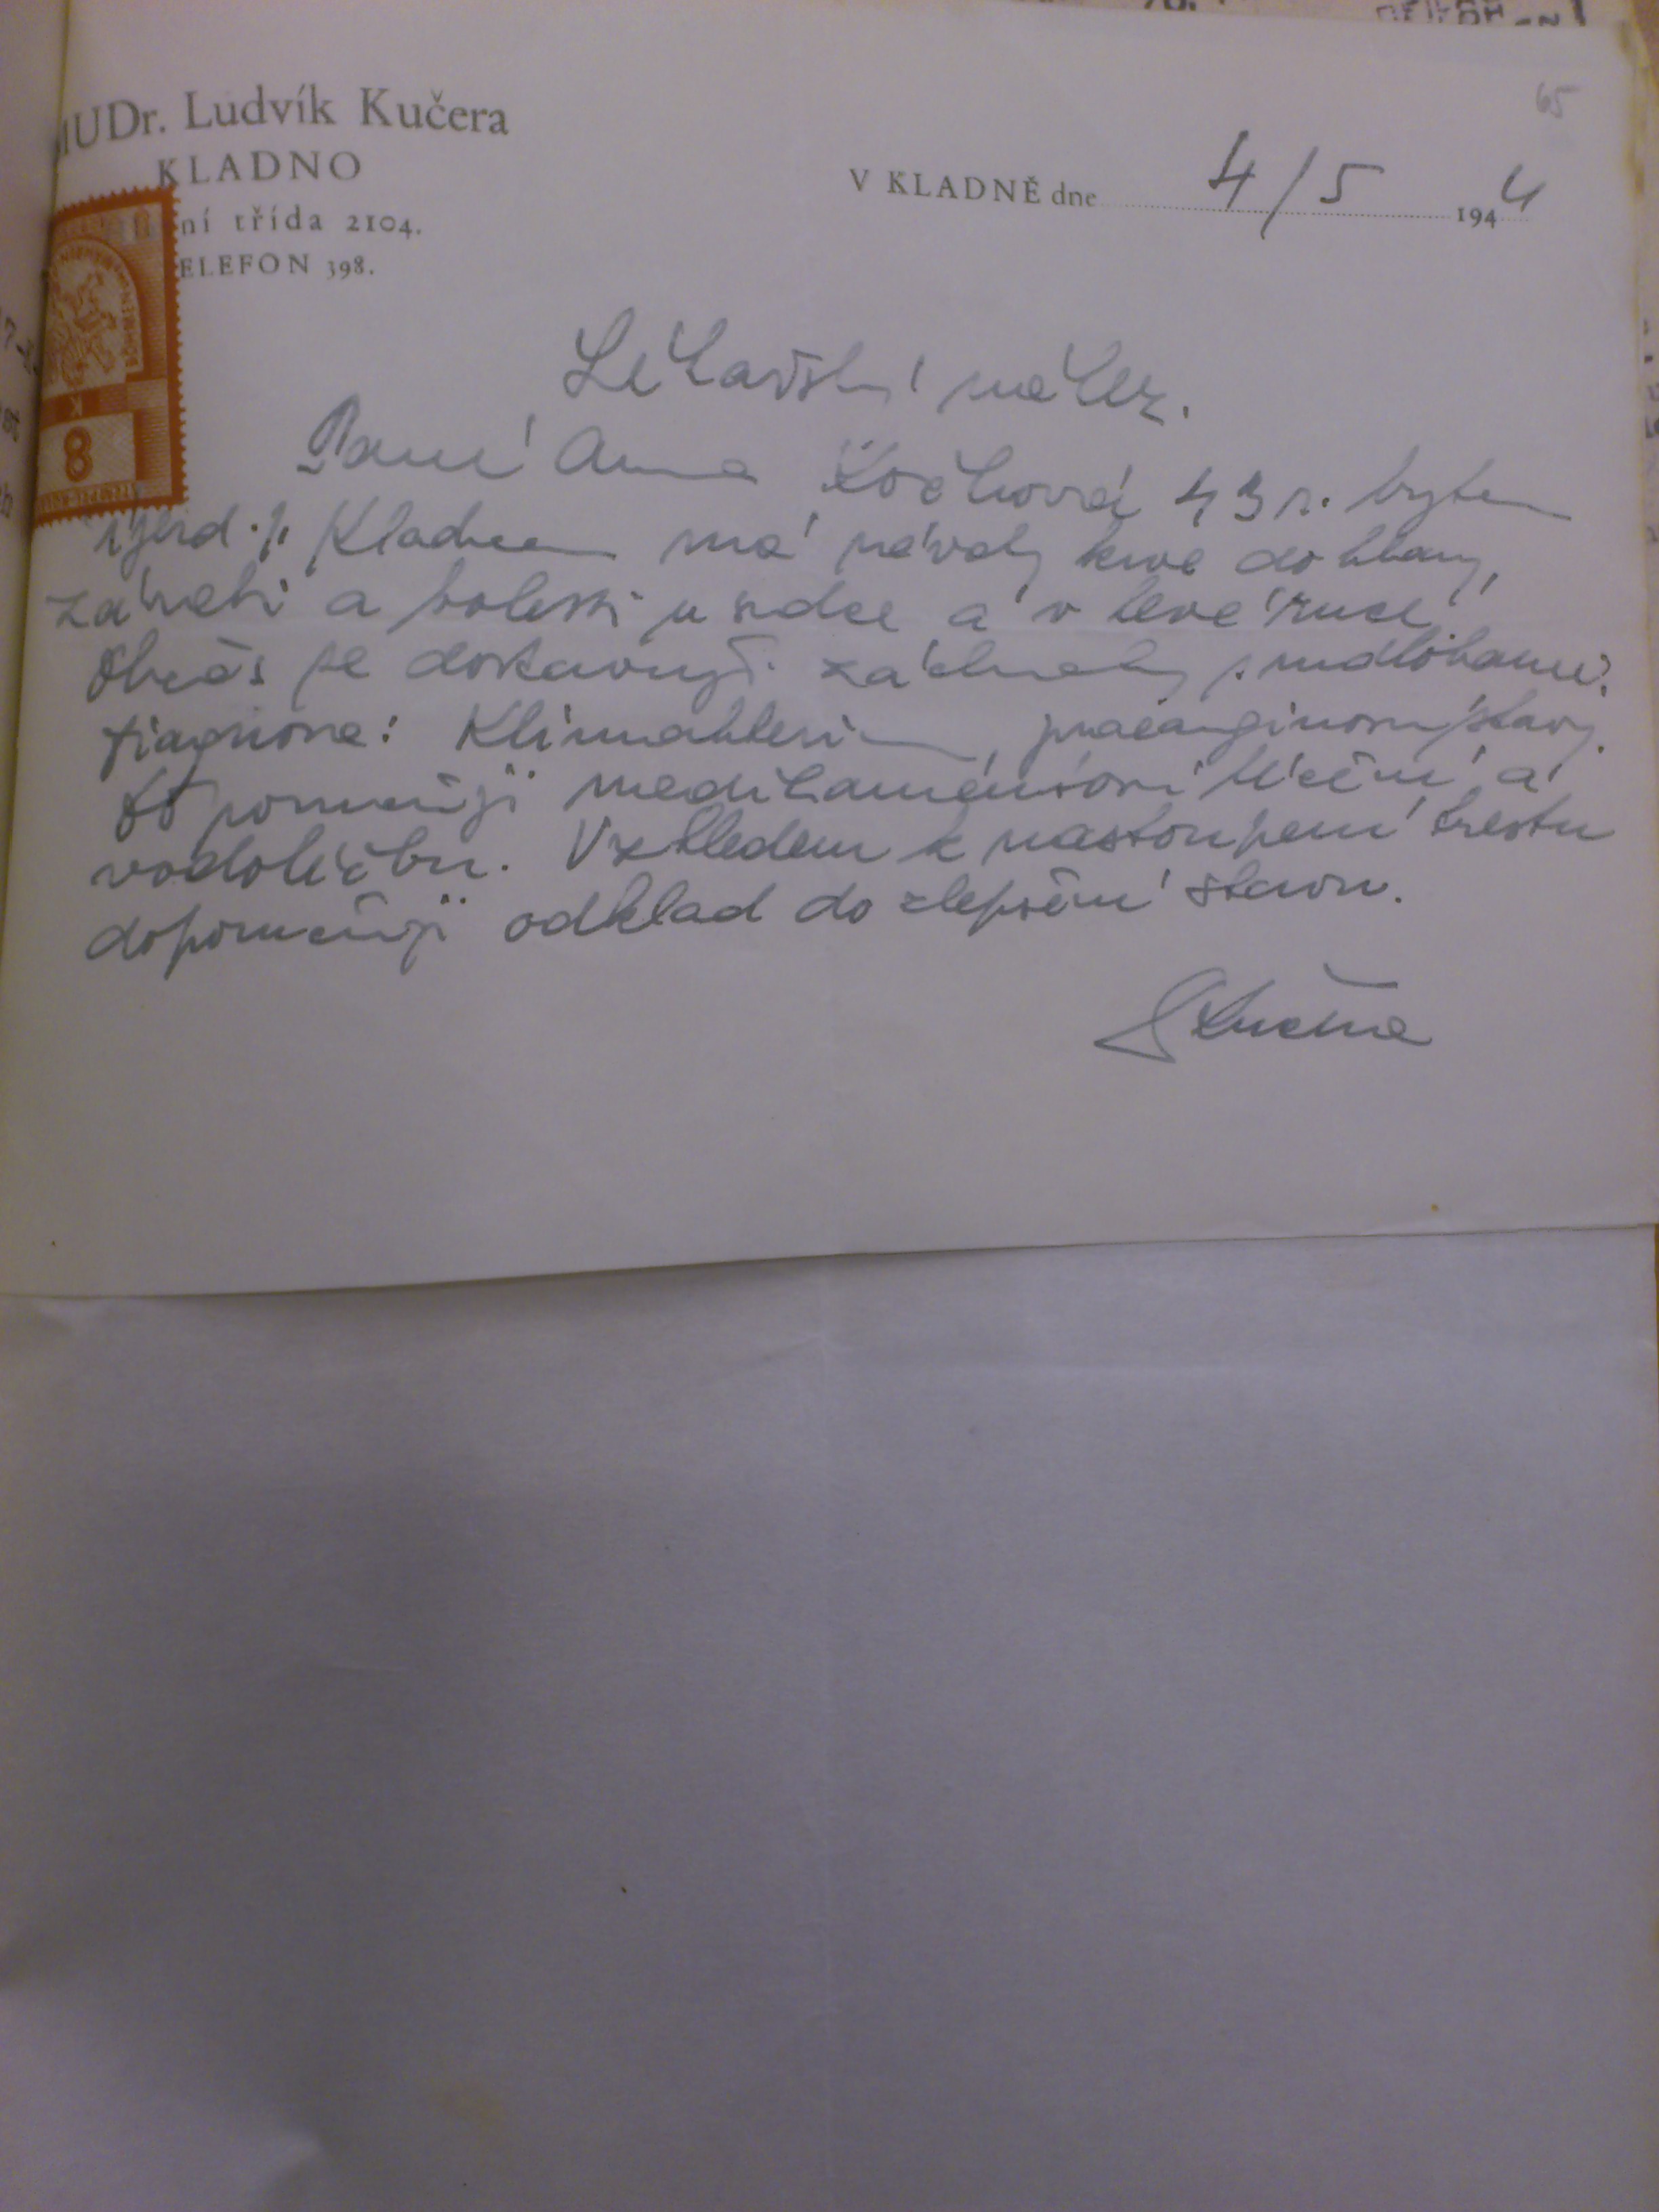 MUDr. Ludvík Kučera
KLADNO
ní třída 2104.
TELEFON 398.
65
V KLADNĚ dne 4/5 1944
8
K
Lékařský nález.
Paní Anna 43 r. bytem
Kladna má návaly krve do hlavy,
závrati a bolesti u srdce a v levé ruce.
Občas se dostavují záchvaty mdlobami.
Diagnosa: Klimakterium, praeanginosní stavy.
Doporučuji medikamentosní léčení a
vodoléčbu. Vzhledem k nastoupení trestu
doporučuji odklad do zlepšení stavu.
Kučera